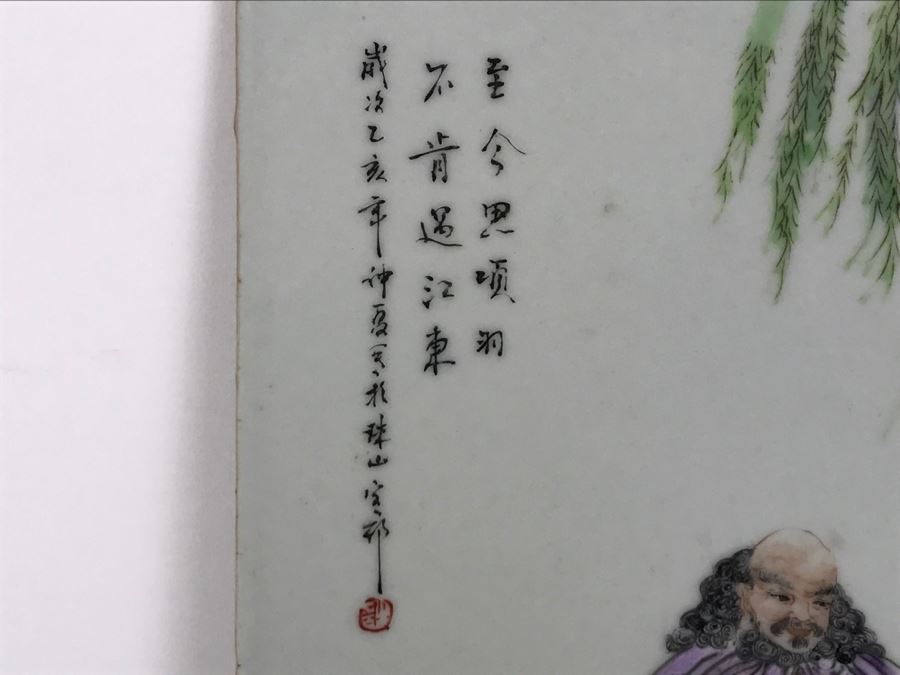 至今思項羽
不肯過江東
歲次乙亥年仲夏寫於珠山客邨